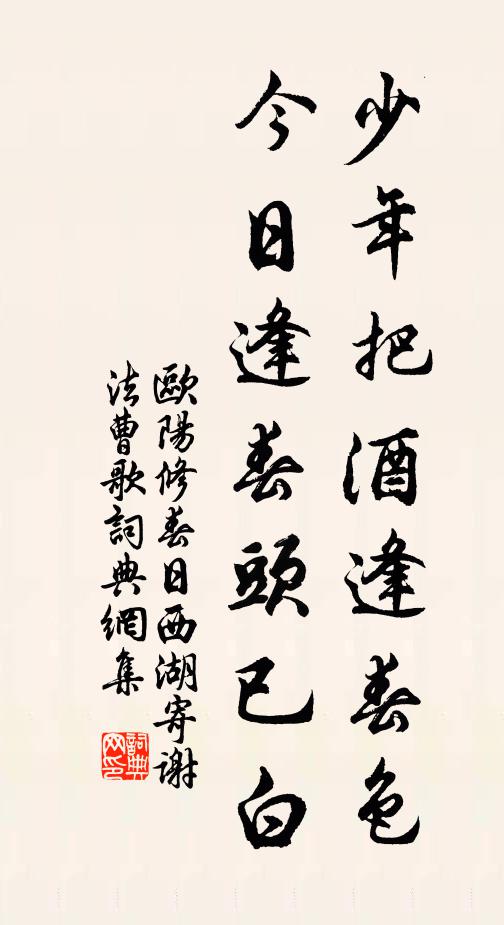 少年把酒逢春色
今日逢春頭已白
歐陽修春日西湖寄謝
法曹歌詞典網集
詞典網印